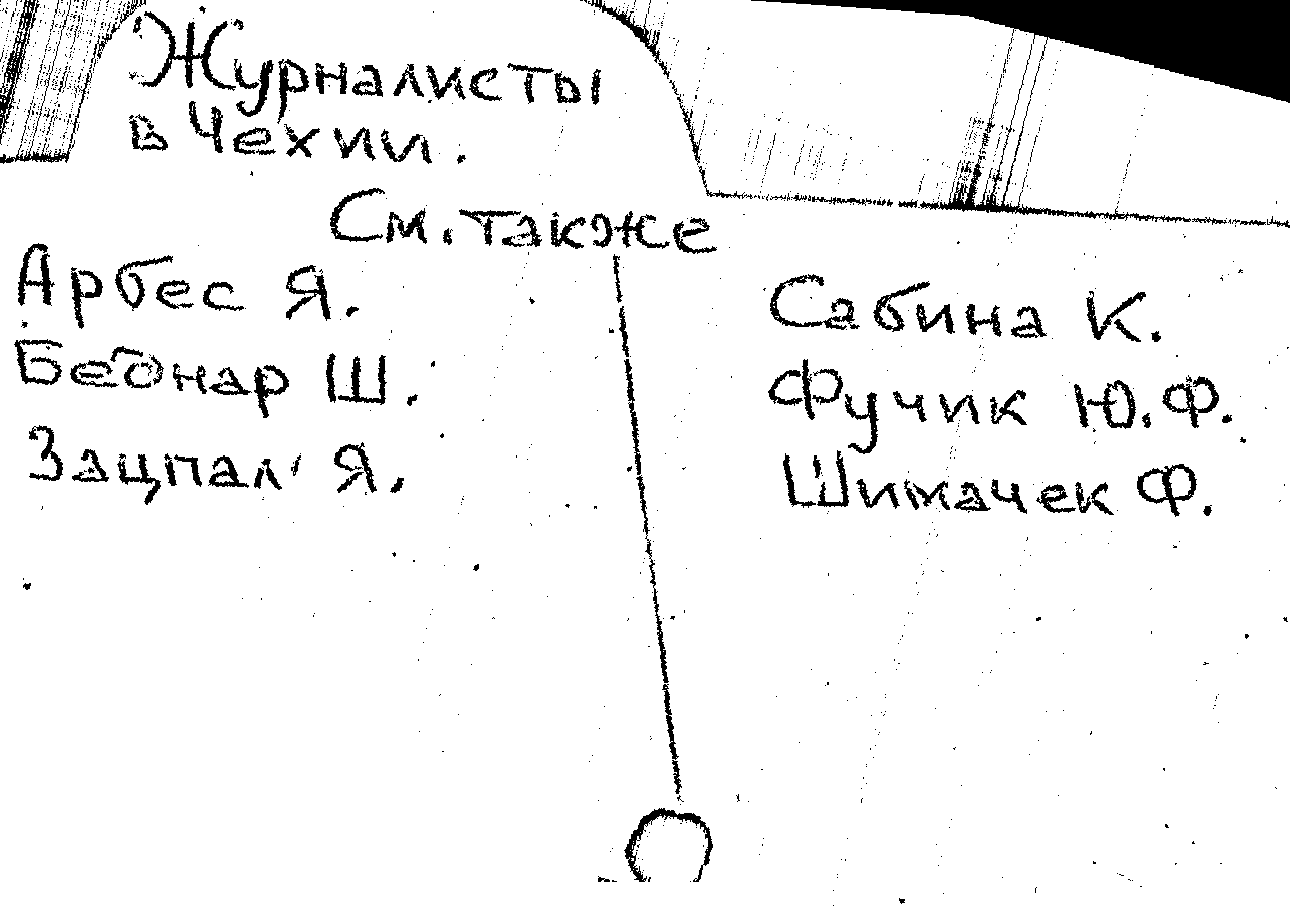 Журналисты
в Чехии.
См. также
Арбес Я.
Беднар Ш.
Зацпал Я.
Сабина К.
Фучик Ю.Ф.
Шимачек Ф.